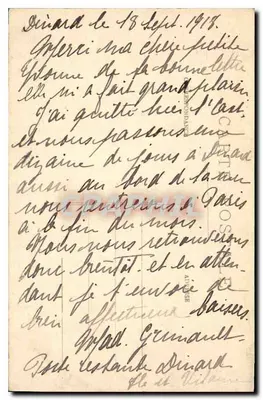 Dinard le 18 Sept. 1918.
Merci ma chère petite
Yvonne de ta bonne lettre
elle m'a fait grand plaisir
J'ai quitté hier l'
et nous passons une
dizaine de jours à Dinard
aussi au bord de la mer
nous rentrerons à Paris
à la fin du mois.
Nous nous retrouverons
donc bientôt et en atten
dant je t'envoie de
bien affectueux baisers.
Mad. Grimault
Poste restante Dinard
Ile et Vilaine